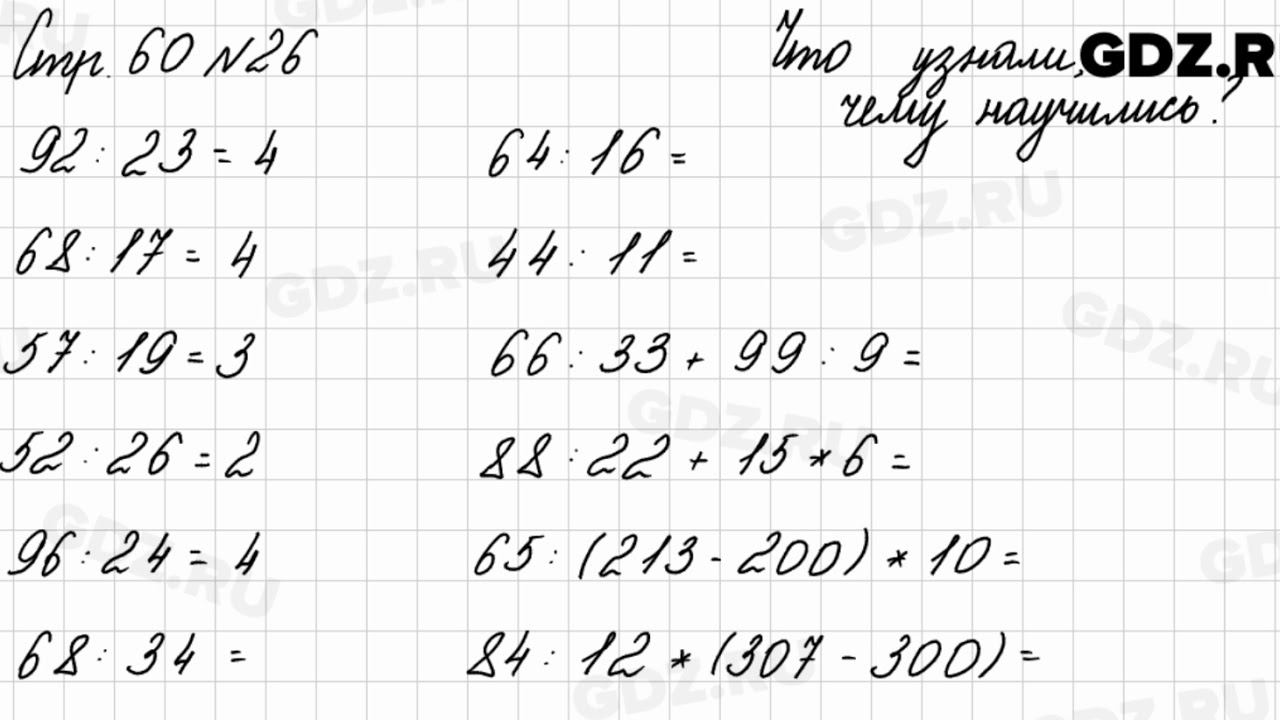 Стр. 60 №26
Что узнали, GDZ.R
чему научились?
92 : 23 = 4
64 : 16 =
68 : 17 = 4
44 : 11 =
57 : 19 = 3
66 : 33 + 99 : 9 =
52 : 26 = 2
88 : 22 + 15 * 6 =
96 : 24 = 4
65 : (213 - 200) * 10 =
68 : 34 =
84 : 12 * (307 - 300) =
GDZ.RU
GDZ.RU
GDZ.RU
GDZ.RU
GDZ.RU
GDZ.RU